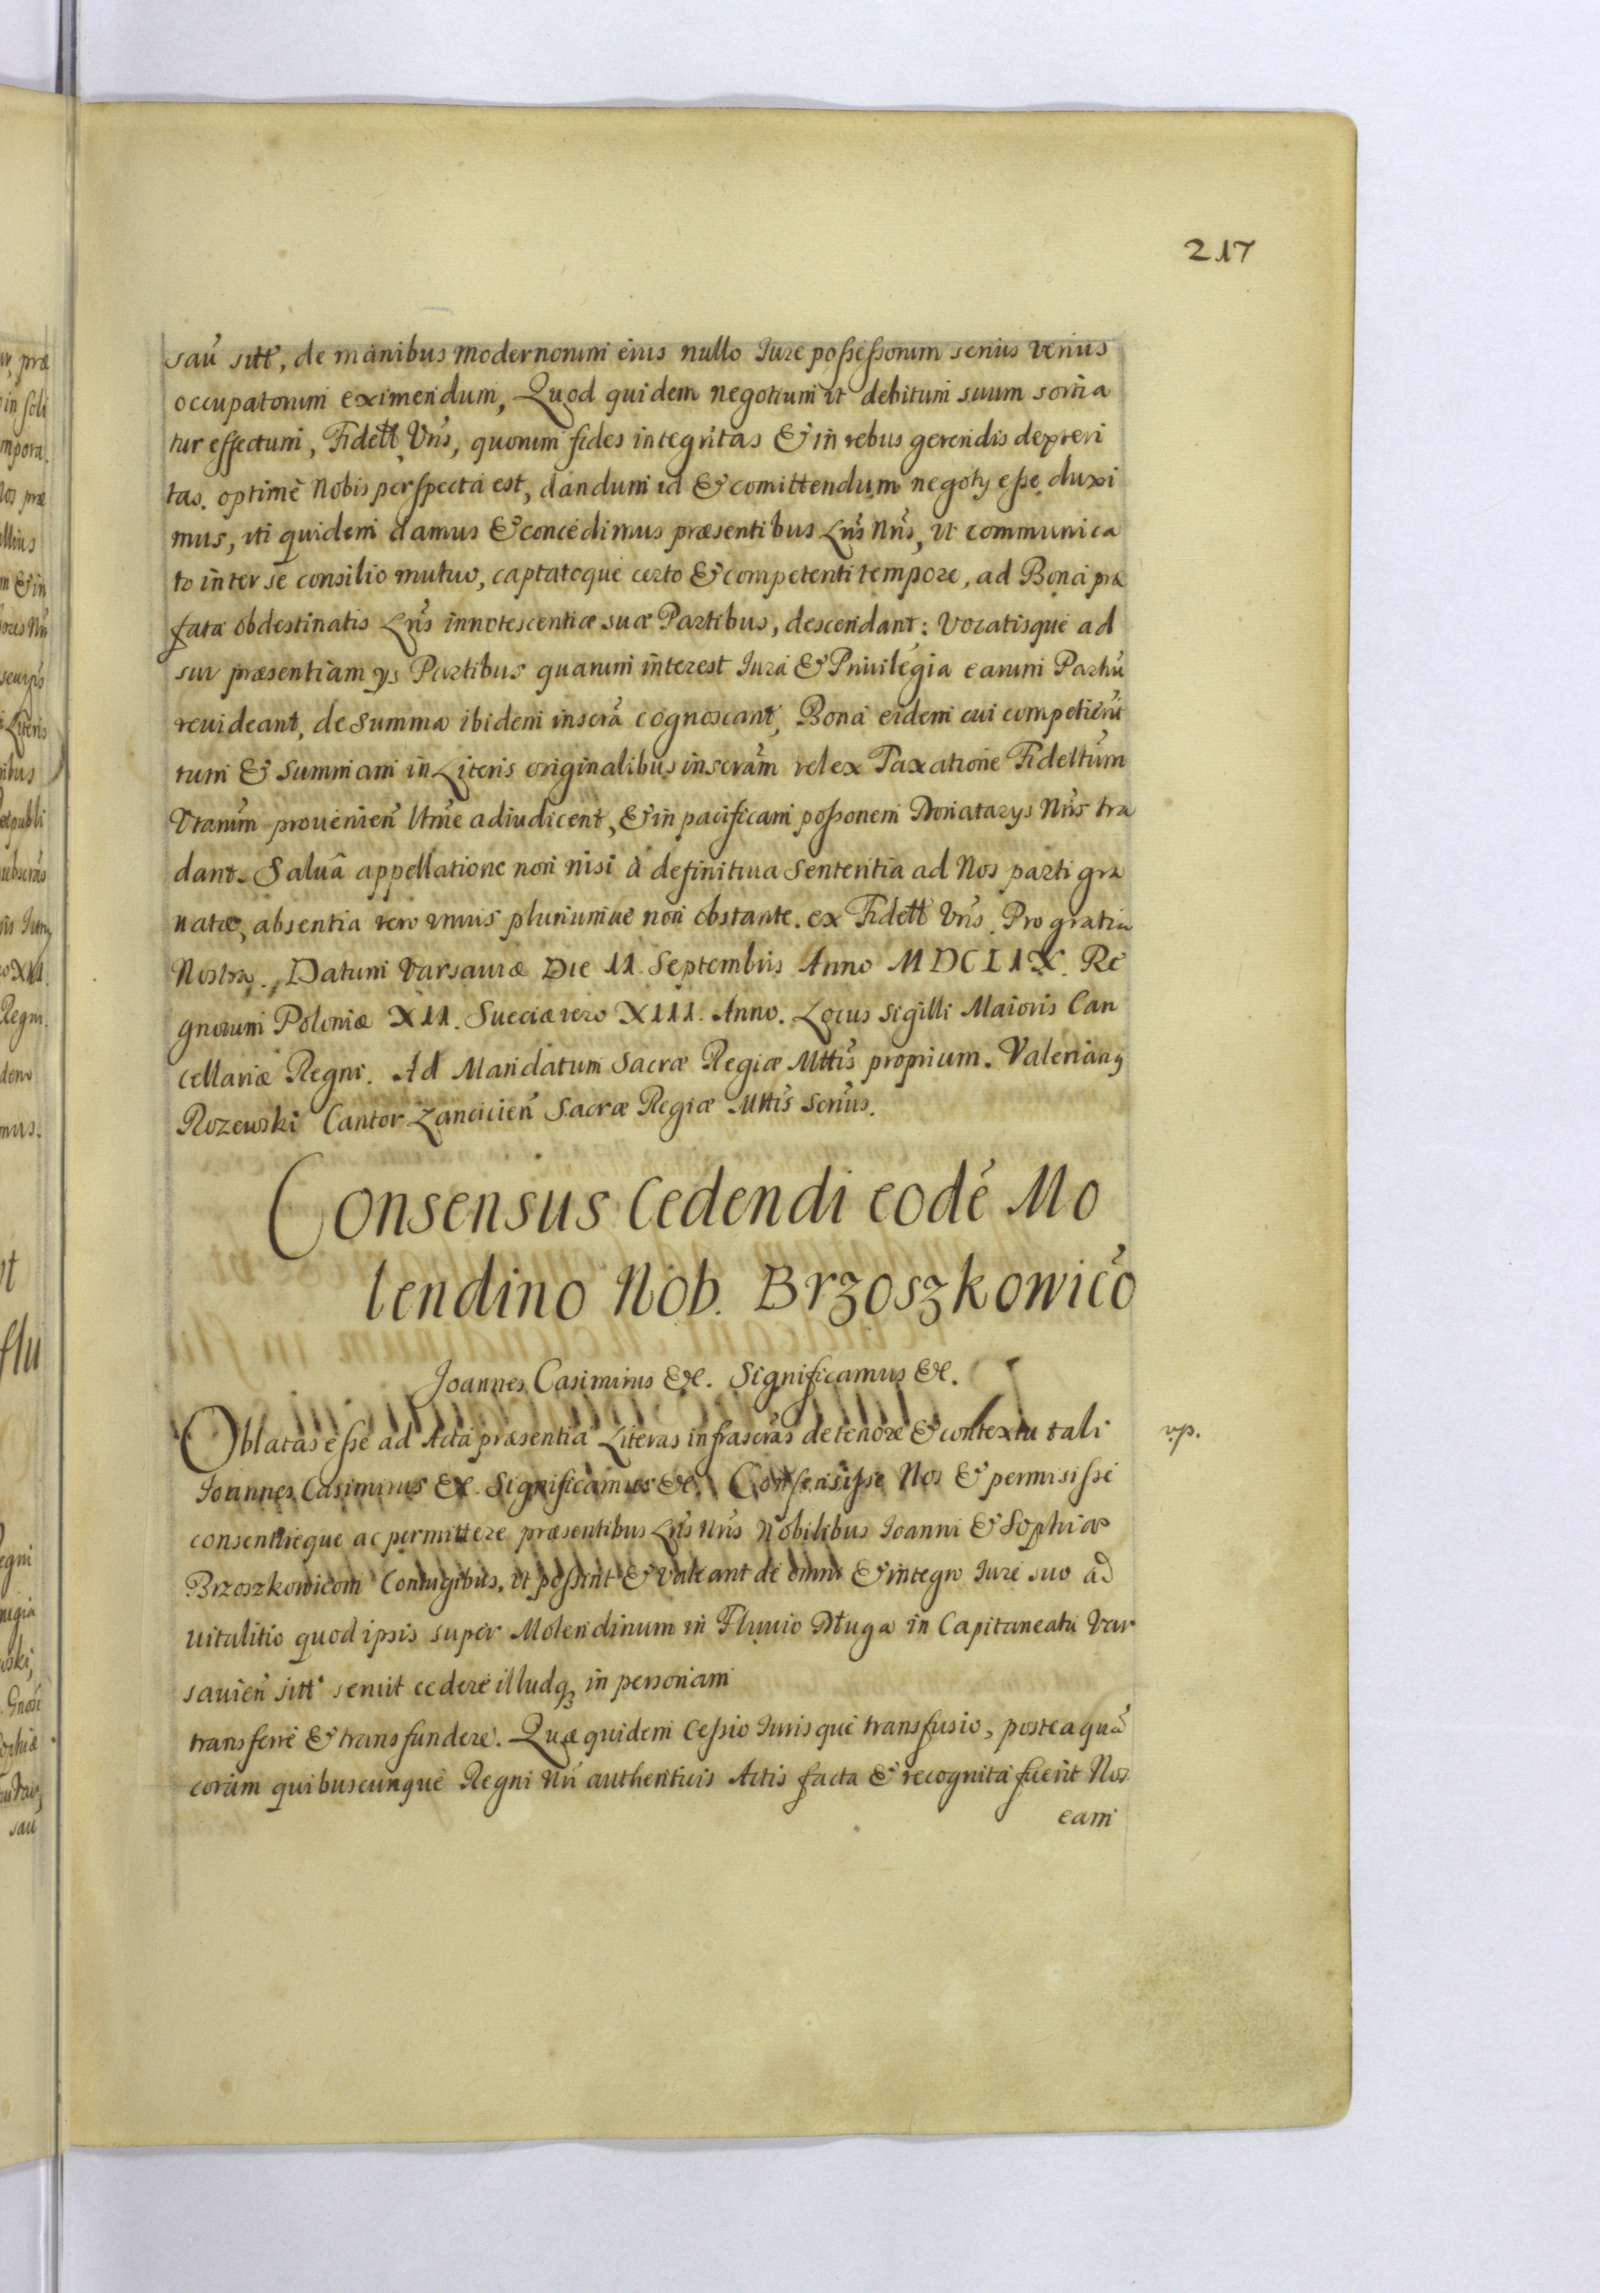 217
sau sitt, de manibus modernorum eius nullo Iure possessorum serius verius
occupatorum eximendum, Quod quidem negotium ut debitum suum sortia
tur effectum, Fidett Vris, quorum fides integritas & in rebus gerendis dexteri
tas. optimè Nobis perspecta est, dandum id & comittendum negotÿ esse duxi
mus, uti quidem damus & concedimus præsentibus Lris Nris, ut communica
to inter se consilio mutuo, captatoque certo & competenti tempore, ad Bona præ
fata obdestinatis Lris innotescentiæ suæ Partibus, descendant: vocatisque ad
sui præsentiam ÿs Partibus quarum interest Iura & Privilegia earum Partiu
revideant, de Summa ibidem inscra cognoscant, Bona eidem cui competierit
tum & Summam in Literis originalibus inscram vel ex Taxatione Fideltum
Vranum provenien Ultme adiudicent, & in pacificam possonem Donatarÿs Nris tra
dant. Saluâ appellatione non nisi à definitiua Sententia ad Nos parti gra
natæ, absentia vero unius pluriumue non obstante. ex Fidett Vris. Pro gratia
Nostra. Datum Varsaviæ Die 11. Septembris Anno MDCLIX. Re
gnorum Poloniæ XII. Sueciæ vero XIII. Anno. Locus Sigilli Maioris Can
cellariæ Regni. Ad Mandatum Sacræ Regiæ Mttis proprium. Valerianq
Rozewski Cantor Lancicien Sacræ Regiæ Mttis Scrius.
Consensus Cedendi eodé Mo
lendino Nob. Brzoszkowico
Joannes Casimirus &c. Significamus &c.
Oblatas esse ad Acta præsentia Literas infrascras de tenore & contextu tali
Joannes Casimirus &c. Significamus &c. Consensisse Nos & permisisse
consentireque ac permittere præsentibus Lris Nris Nobilibus Joanni & Sophiæ
Brzoszkowicom Coniugibus, ut possint & valeant de omni & integro Iure suo ad
uitalitio quod ipsis super Molendinum in Fluuio Długa in Capitaneatu Var
savien sitt seruit cedere illudq in personam
transferre & transfundere. Quæ quidem Cessio Iurisque transfusio, postea quã
coram quibuscunque Regni Nri authenticis Actis facta & recognita fuerit Nos
eam
v.p.